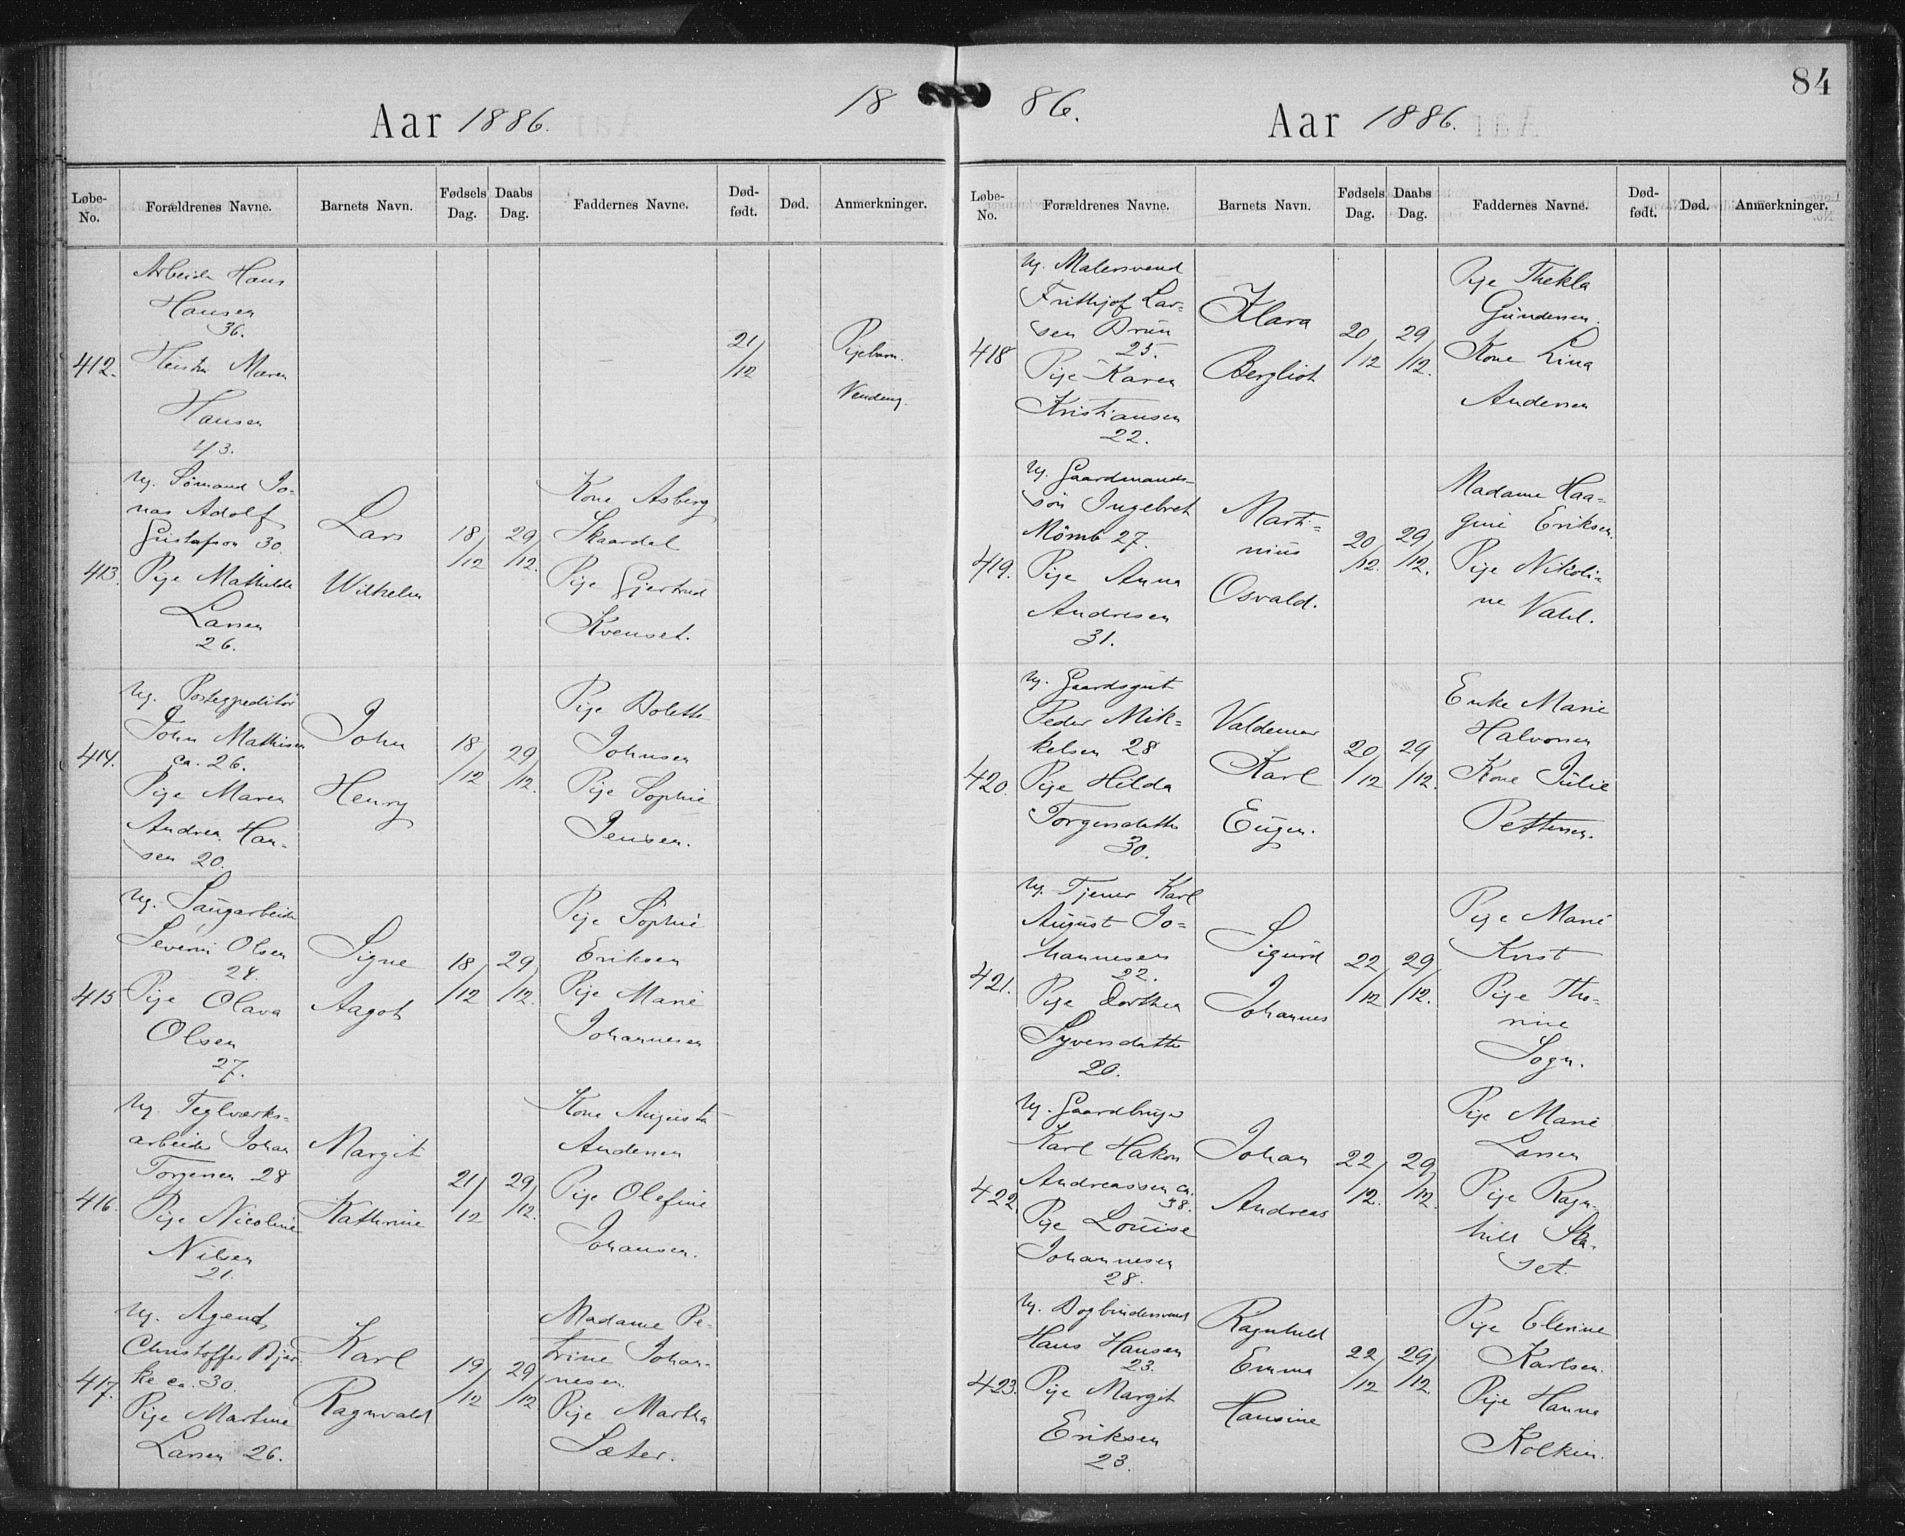 84
Aar 1886.
18
86.
Aar 1886.
Løbe-No.
Forældrenes Navne.
Barnets Navn.
Fødsels Dag.
Daabs Dag.
Faddernes Navne.
Død-født.
Død.
Anmerkninger.
412.
Arbeider Hans
Hansen
36.
Maren
Hansen
43.
21/12
Pigebarn.
413.
Ug. Sømand Jo-
nas Adolf
Gustafson 30.
Pige Mathilde
Larsen
26.
Lars
Wilhelm
18/12
29/12.
Kone Asberg
Skaardal
Pige Gjertrud
Kvenset.
414.
Ug. Postexpeditør
John Mathisen
ca. 26.
Pige Maren
Andrea Han-
sen 20.
John
Henry
18/12
29/12.
Pige Dolette
Johnsen
Pige Sophie
Jensen.
415
Ug. Saugarbeider
Severin Olsen
24.
Pige Olava
Olsen
27.
Signe
Aagot
18/12
29/12.
Pige Sophie
Eriksen
Pige Marie
Johannesen
416.
Ug. Teglværks-
arbeider Johan
Torgersen 28
Pige Nicoline
Nilsen
21.
Margit
Kathrine
21/12
29/12.
Kone Augusta
Andersen
Pige Olefine
Johansen.
417.
Ug. Agent
Christoffer Bjer-
ke ca. 30.
Pige Martine
Larsen 26.
Karl
Ragnvald
19/12
29/12
Madame Pe-
trine Johan-
nesen.
Pige Martha
Sæter.
Løbe-No.
Forældrenes Navne.
Barnets Navn.
Fødsels Dag.
Daabs Dag.
Faddernes Navne.
Død-født.
Død.
Anmerkninger.
418
Ug. Malersvend
Frithjof Lar-
sen Bruun
25.
Pige Karen
Kristiansen
22.
Klara
Bergliot
20/12
29/12.
Pige Thekla
Gundersen.
Kone Lina
Andersen
419.
Ug. Gaardmands-
søn Ingebret
Mømb 27.
Pige Anna
Andresen
31.
Marti-
nius
Osvald.
20/12.
29/12.
Madame Haa-
gine Eriksen.
Pige Nikoli-
ne Vahl.
420.
Ug. Gaardsgut
Peder Mik-
kelsen 28
Pige Hilda
Torgersdatter
30.
Valdemar
Karl
Eugen.
20/12
29/12.
Enke Marie
Halvorsen
Kone Julie
Pettersen.
421.
Ug. Tjener Karl
August Jo-
hannesen
22.
Pige Dorthea
Syversdatter
20.
Sigurd
Johannes
22/12
29/12.
Pige Marie
Kvist
Pige Tho-
rine
Sogn.
422.
Ug. Gaardbruger
Karl Hakon
Andreassen ca.
38.
Pige Louise
Johannesen
28.
Johan
Andreas
22/12.
29/12.
Pige Marie
Larsen
Pige Ragn-
hild Ska-
set.
423.
Ug. Bogbindersvend
Hans Hansen
23.
Pige Margit
Eriksen
23.
Ragnhild
Emma
Hansine
22/12
29/12
Pige Elerine
Karlsen.
Pige Hanna
Kolkin.